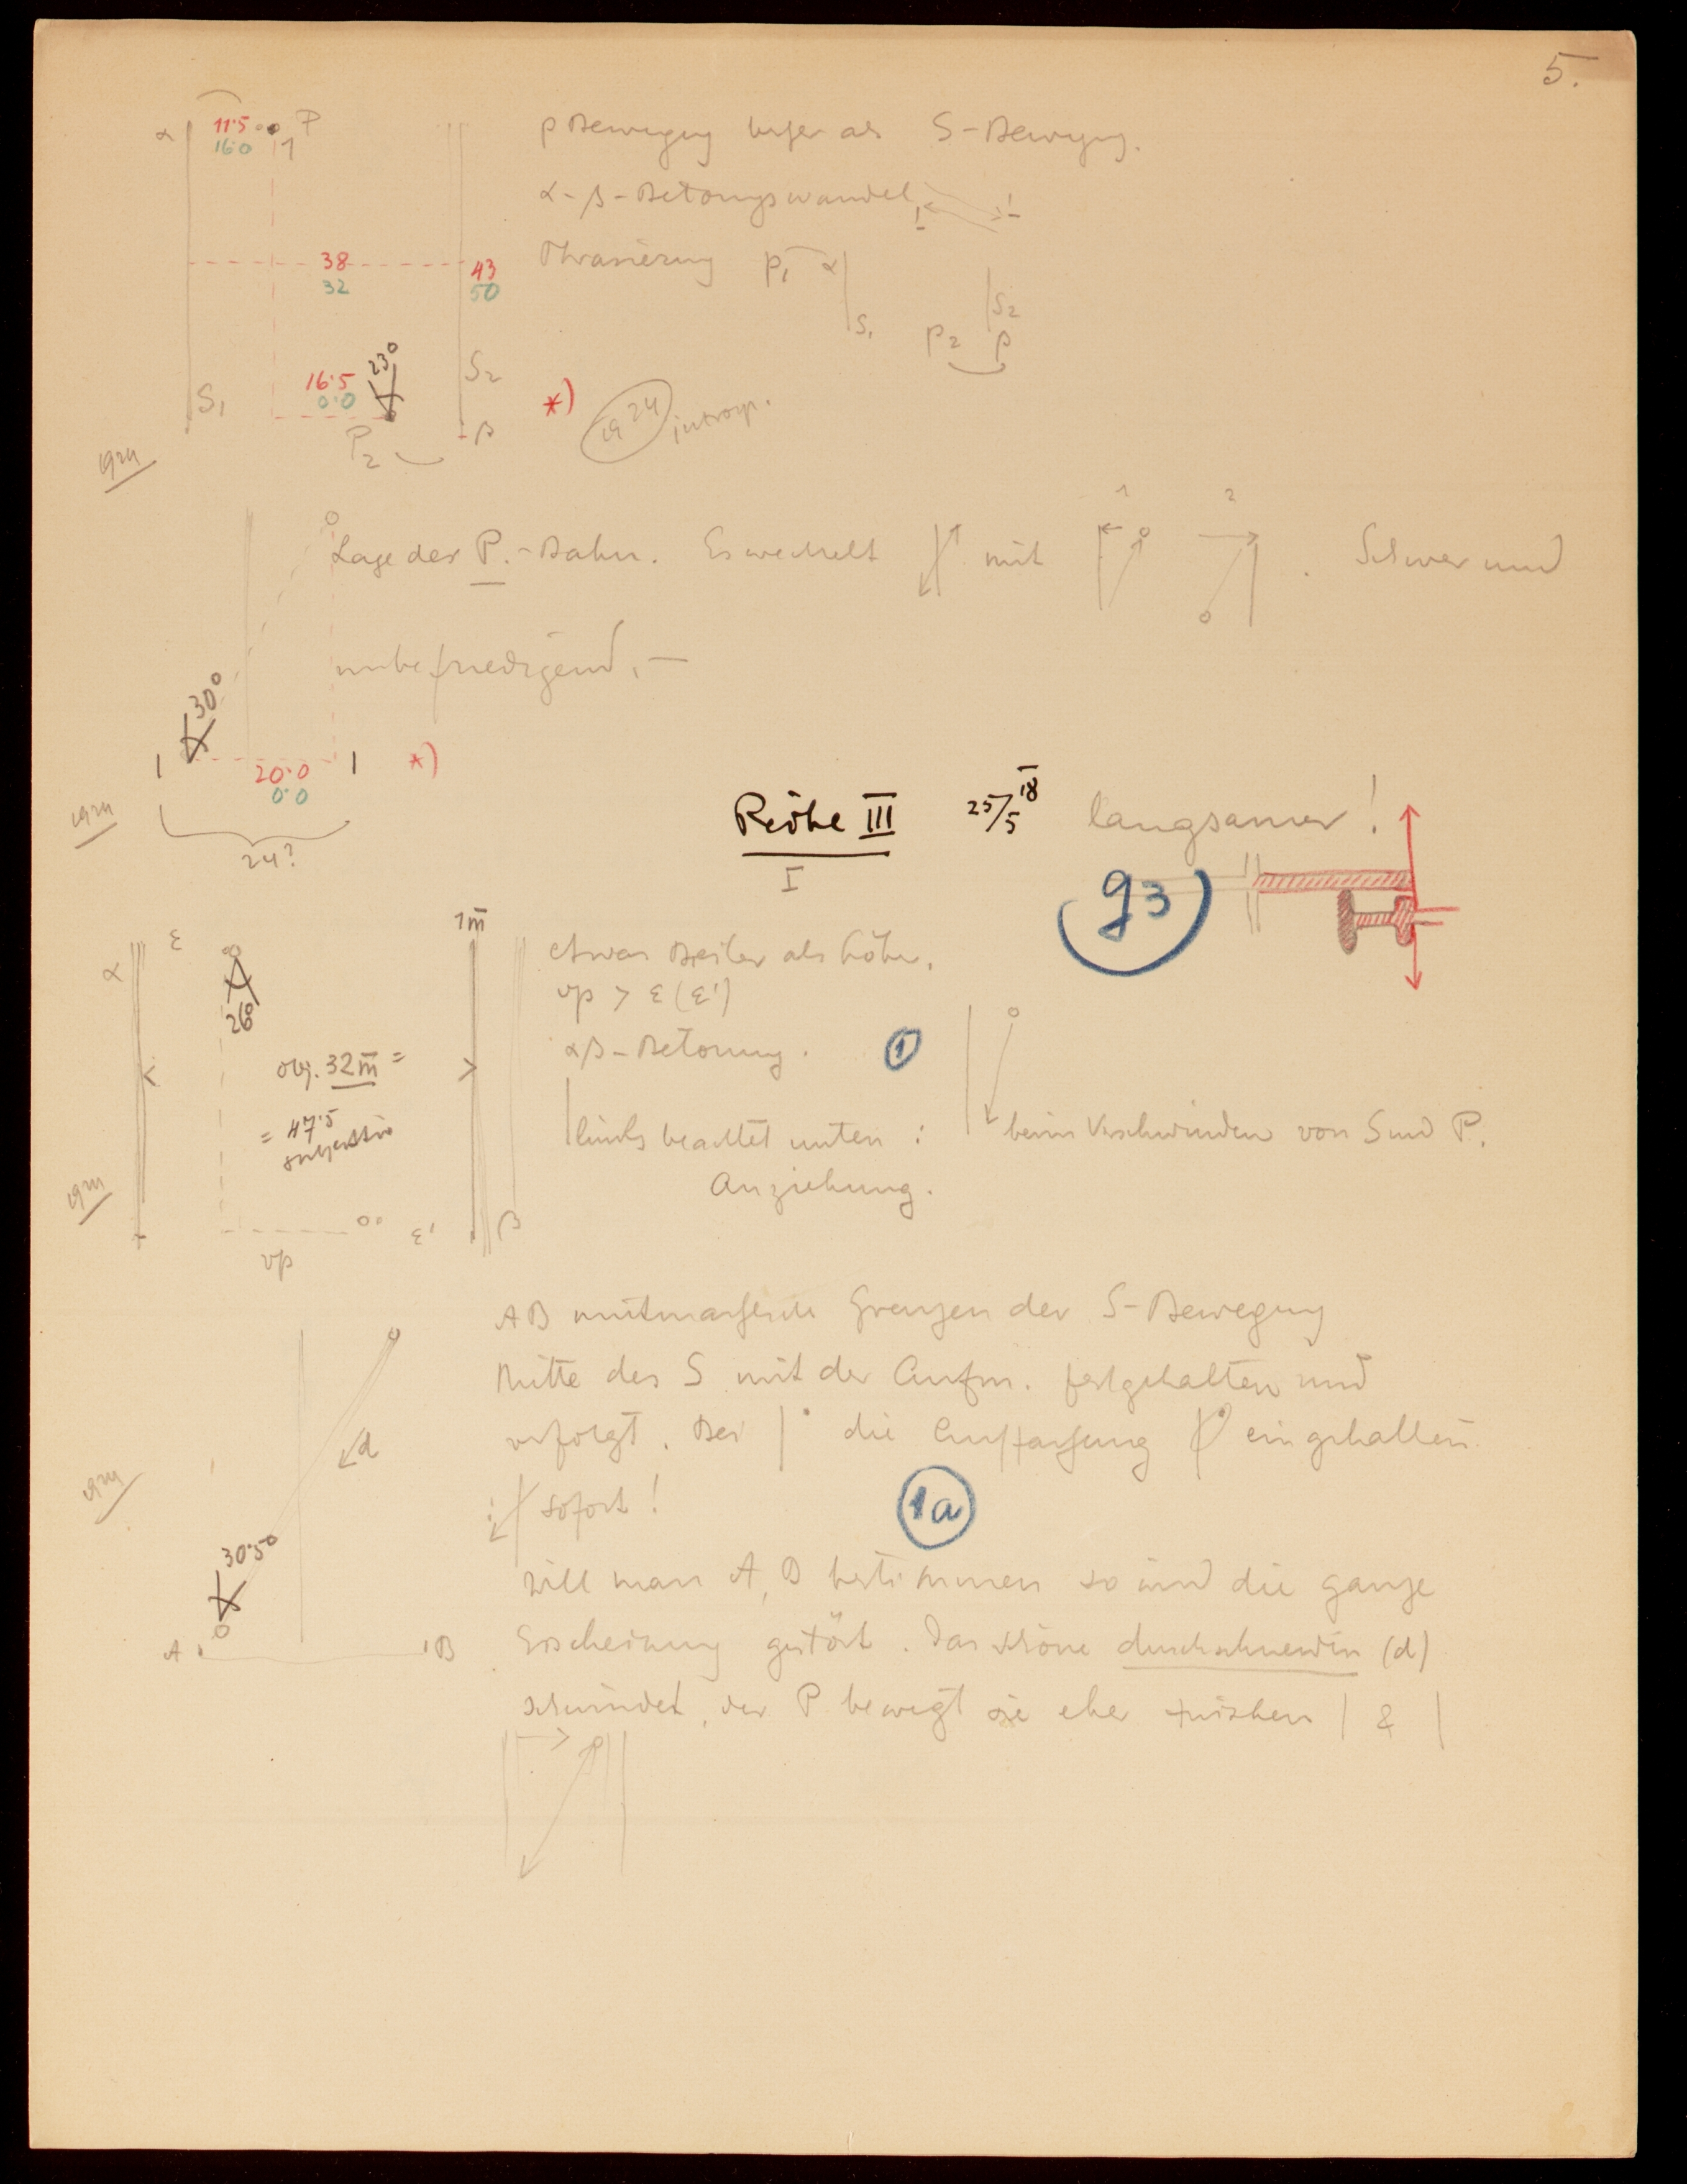 5.
α 11·5 P
16·0 1
p Bewegung als S-Bewegung.
α-β-Betonungswandel
38 43
32 50
Phrasierung p₁ α
S₁ S₂
p₂ β
16·5 23°
0·0
S₁ S₂
P₂ β
*) 1924 introsp.
1924
Lage der P.-Bahn. Es wechselt mit 1 2 . Schwer und
unbefriedigend. —
30°
20·0 *)
0·0
24?
Reihe III 25/5 18 langsamer!
I
93
α ε 1m̄
26°
etwas breiter als hohe.
vp > ε (ε')
αβ-Betonung. 1
obj. 32 m̄ =
= 47·5
subjektiv
links beachtet unten : beim Verschwinden von S und P.
Anziehung.
vp ε' β
AB mutmassliche Grenzen der S-Bewegung
Mitte des S mit der Aufm. festgehalten und
verfolgt. Bei | die Auffassung eingehalten
d
: sofort!
1a
30·5°
Will man A, B bestimmen so wird die ganze
A B Erscheinung gestört. Das schöne durchschneiden (d)
schwindet, der P bewegt sie eher zwischen | & |